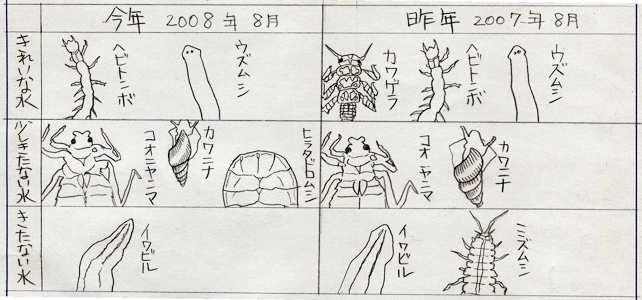 今年 2008年 8月
昨年 2007年 8月
きれいな水
ヘビトンボ
ウズムシ
カワゲラ
ヘビトンボ
ウズムシ
少しきたない水
コオニヤンマ
カワニナ
ヒラタドロムシ
コオニヤンマ
カワニナ
きたない水
イワビル
イワビル
ミズムシ